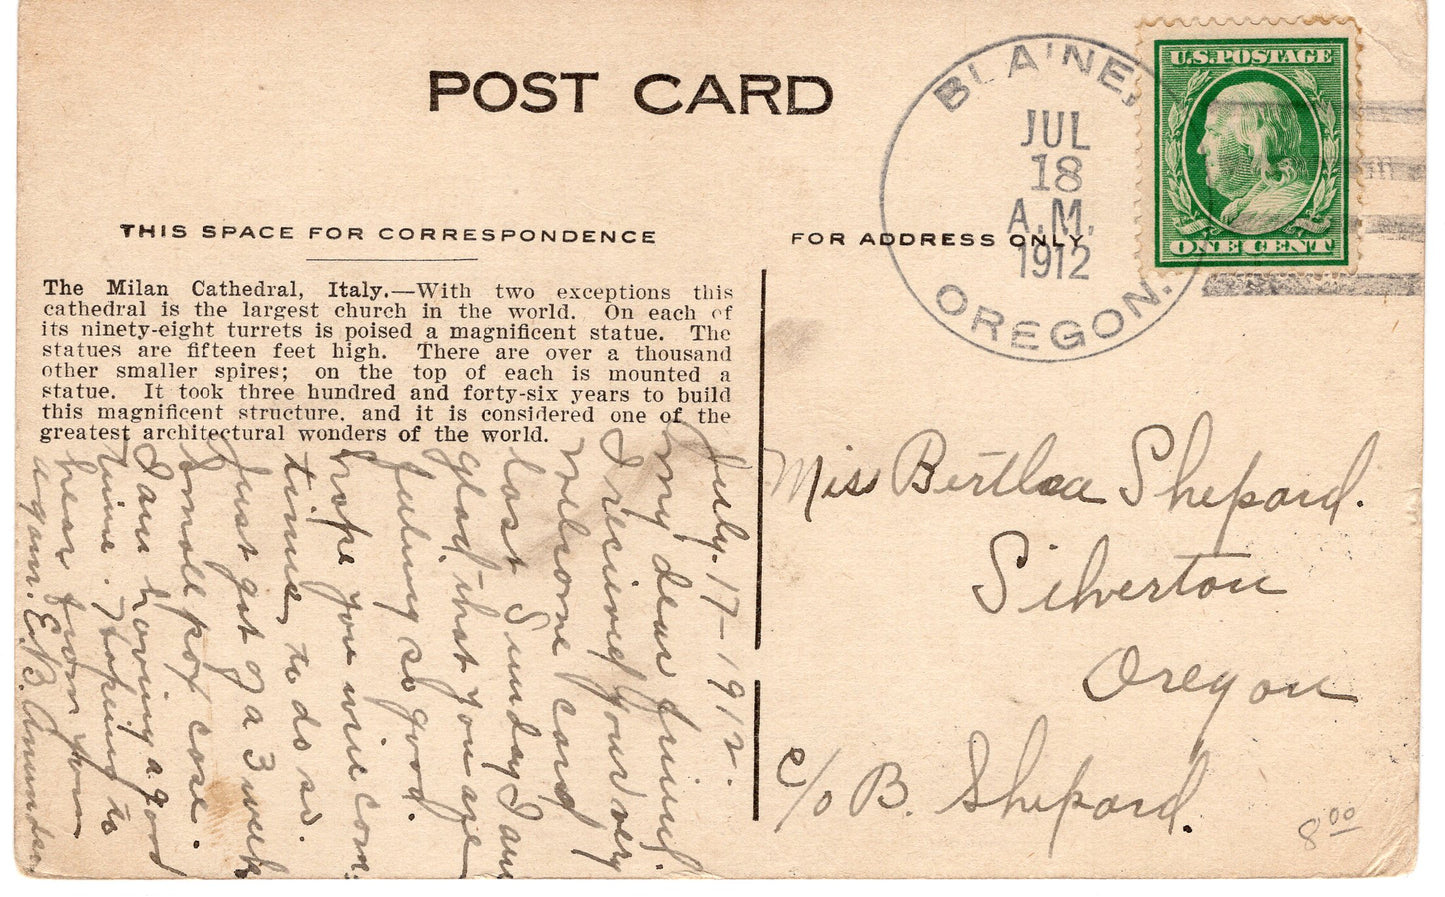 POST CARD
THIS SPACE FOR CORRESPONDENCE
FOR ADDRESS ONLY
BLAINE,
JUL
18
A.M.
1912
OREGON.
U.S. POSTAGE
ONE CENT
The Milan Cathedral, Italy.—With two exceptions this
cathedral is the largest church in the world. On each of
its ninety-eight turrets is poised a magnificent statue. The
statues are fifteen feet high. There are over a thousand
other smaller spires; on the top of each is mounted a
statue. It took three hundred and forty-six years to build
this magnificent structure. and it is considered one of the
greatest architectural wonders of the world.
July. 17-1912.
my dear friend.
I recieved your very
welcome card
last Sunday I am
glad that you are
feeling so good.
hope you will com.
time, to do so.
Just got of a 3 week
Small pox case.
I am having a good
time. Hoping to
hear from you
again. E.B.
Miss Bertha Shepard.
Silverton
Oregon
c/o B. Shepard.
8 00